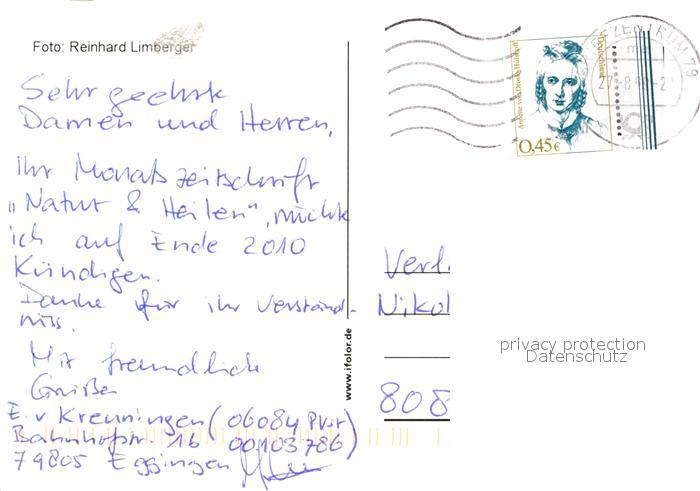 Foto: Reinhard Limberger
Sehr geehrte
Damen und Herren,
Ihr Monatszeitschrift
„Natur & Heilen", möchte
ich auf Ende 2010
Kündigen.
Danke für ihr Verständ-
niss.
Mit freundliche
Grüßen
E. v Kreuningen (06084 Pvst
Bahnhofstr. 16 00103786)
79805 Eggingen
www.ifolor.de
Annette von Droste-Hülshoff
Deutschland
0,45€
ZENTRUM 79
Verl
Nikol
808
privacy protection
Datenschutz